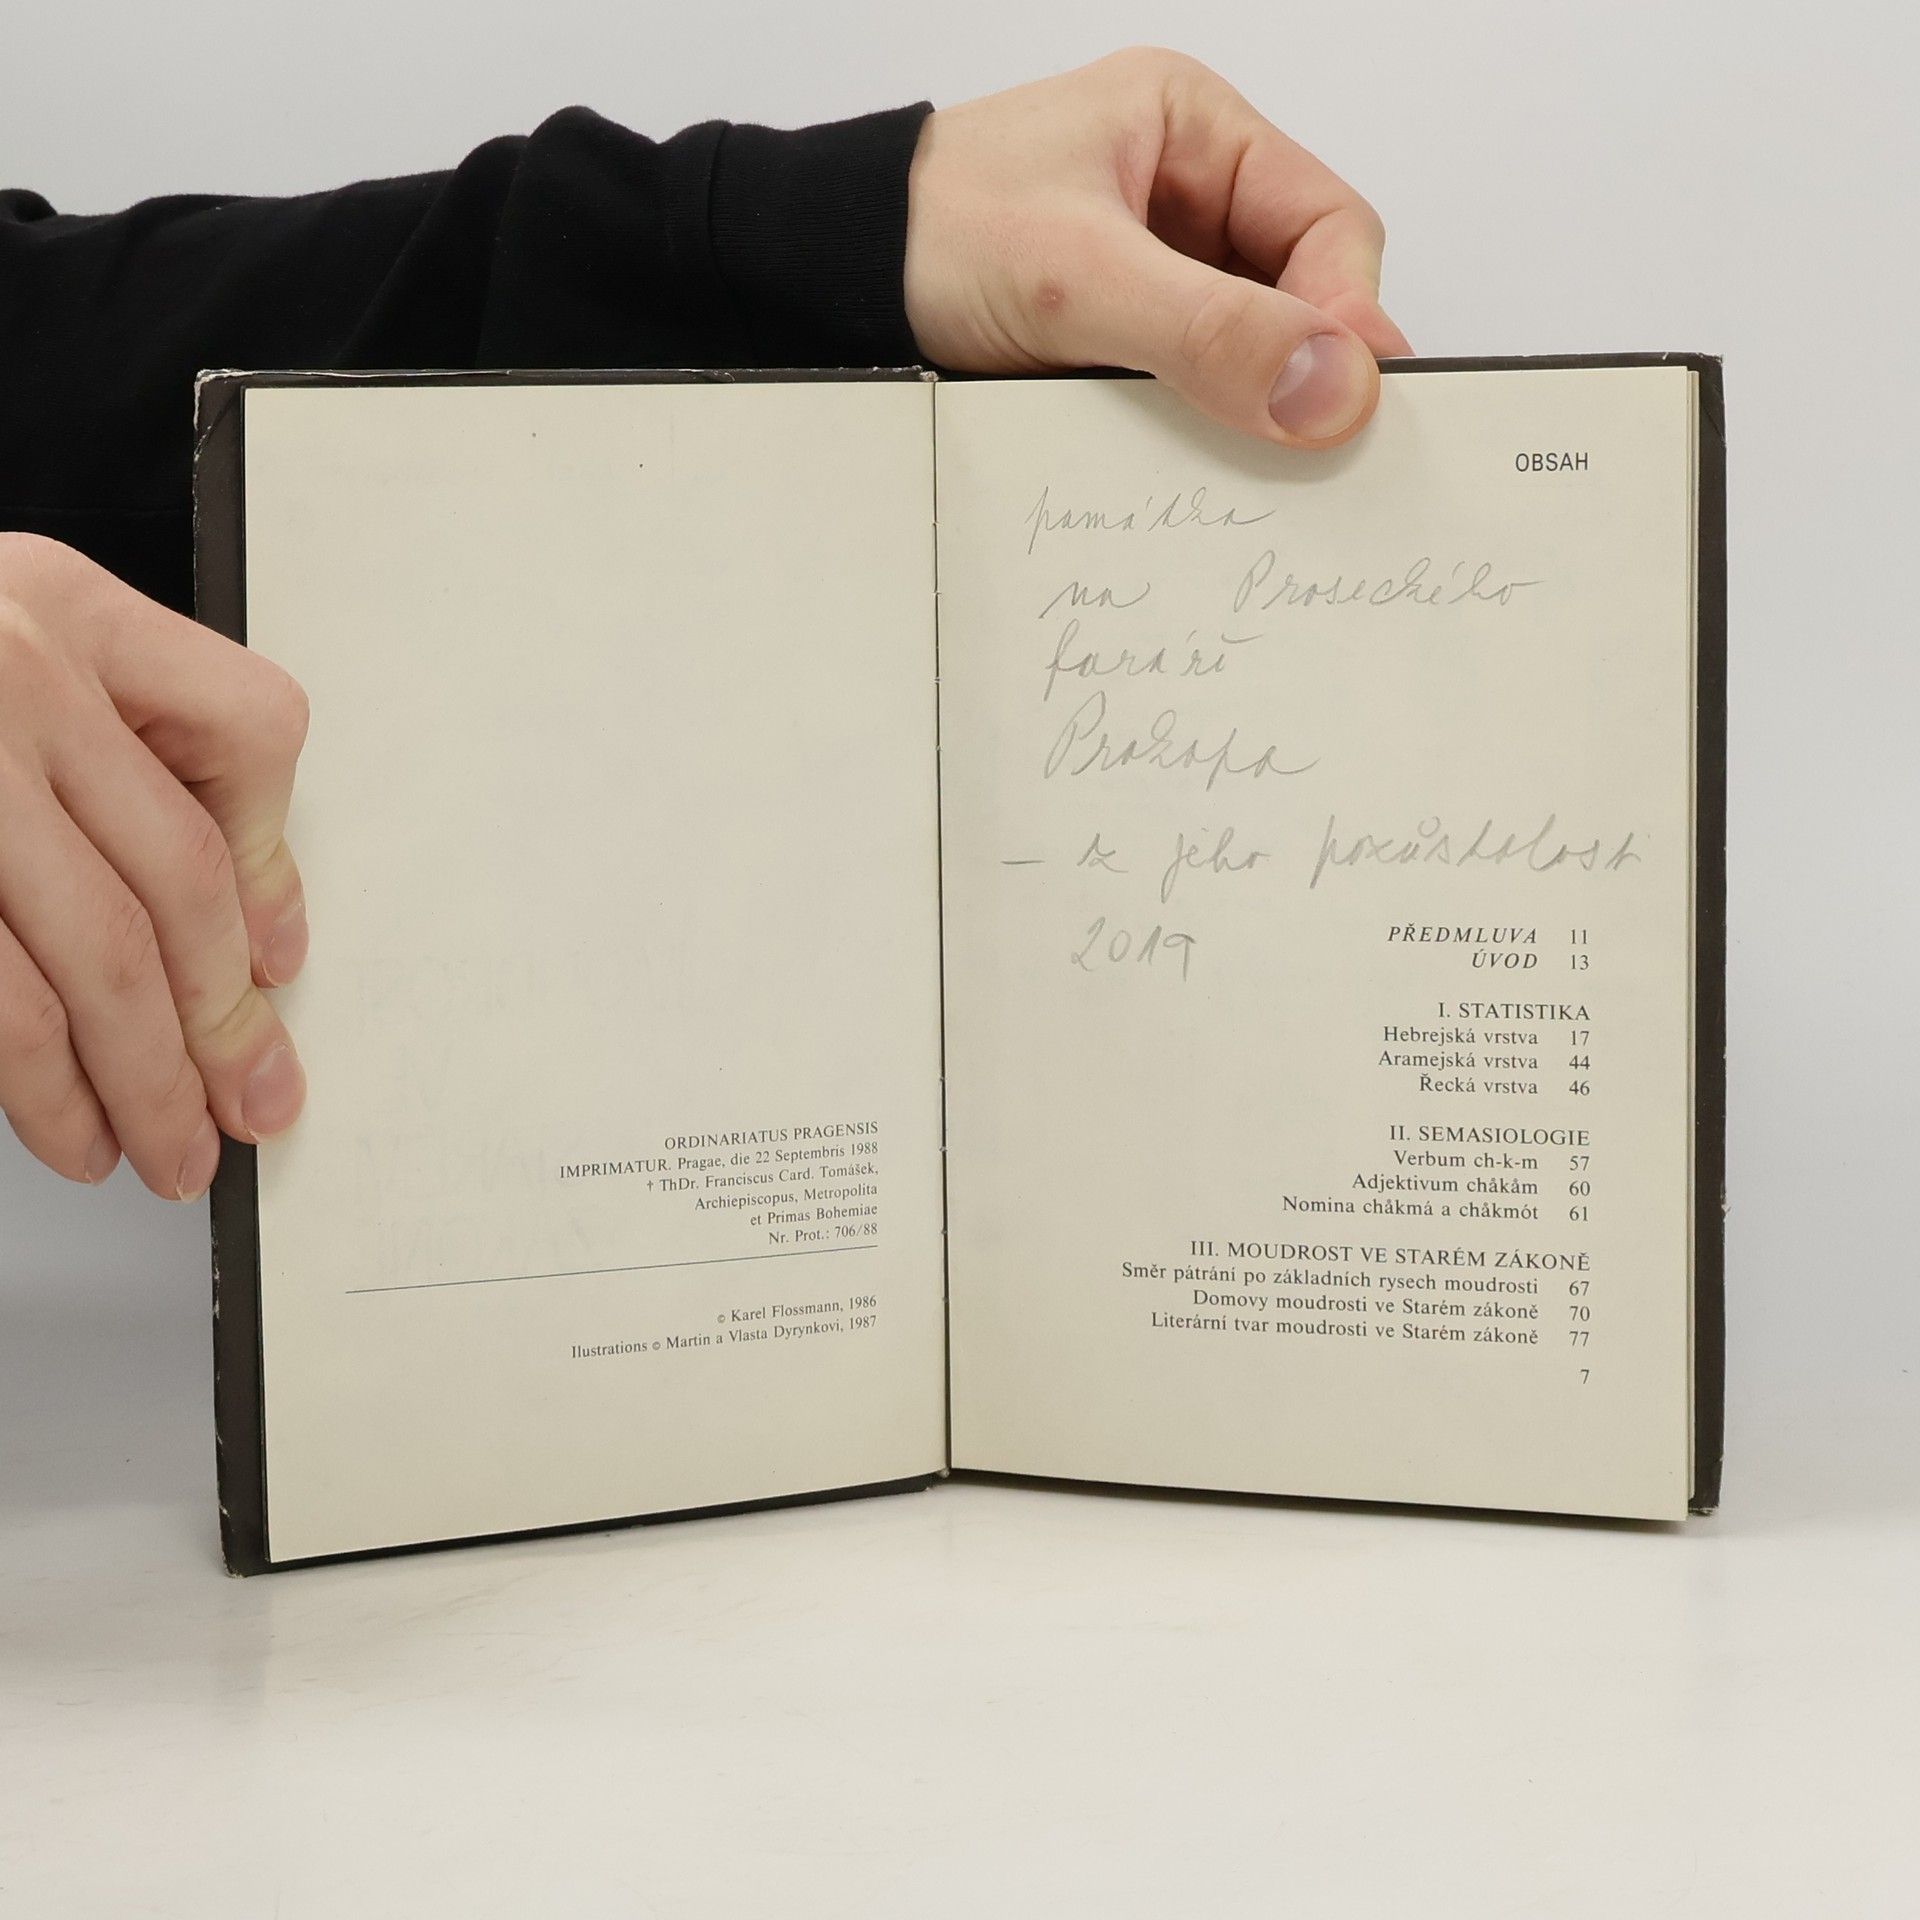 ORDINARIATUS PRAGENSIS
IMPRIMATUR. Pragae, die 22 Septembris 1988
† ThDr. Franciscus Card. Tomášek,
Archiepiscopus, Metropolita
et Primas Bohemiae
Nr. Prot.: 706/88
© Karel Flossmann, 1986
Ilustrations © Martin a Vlasta Dyrynkovi, 1987
OBSAH
památka
na Proseckého
faráři
Prokopa
– z jeho pozůstalosti
2019
PŘEDMLUVA 11
ÚVOD 13
I. STATISTIKA
Hebrejská vrstva 17
Aramejská vrstva 44
Řecká vrstva 46
II. SEMASIOLOGIE
Verbum ch-k-m 57
Adjektivum chåkåm 60
Nomina chåkmá a chåkmót 61
III. MOUDROST VE STARÉM ZÁKONĚ
Směr pátrání po základních rysech moudrosti 67
Domovy moudrosti ve Starém zákoně 70
Literární tvar moudrosti ve Starém zákoně 77
7